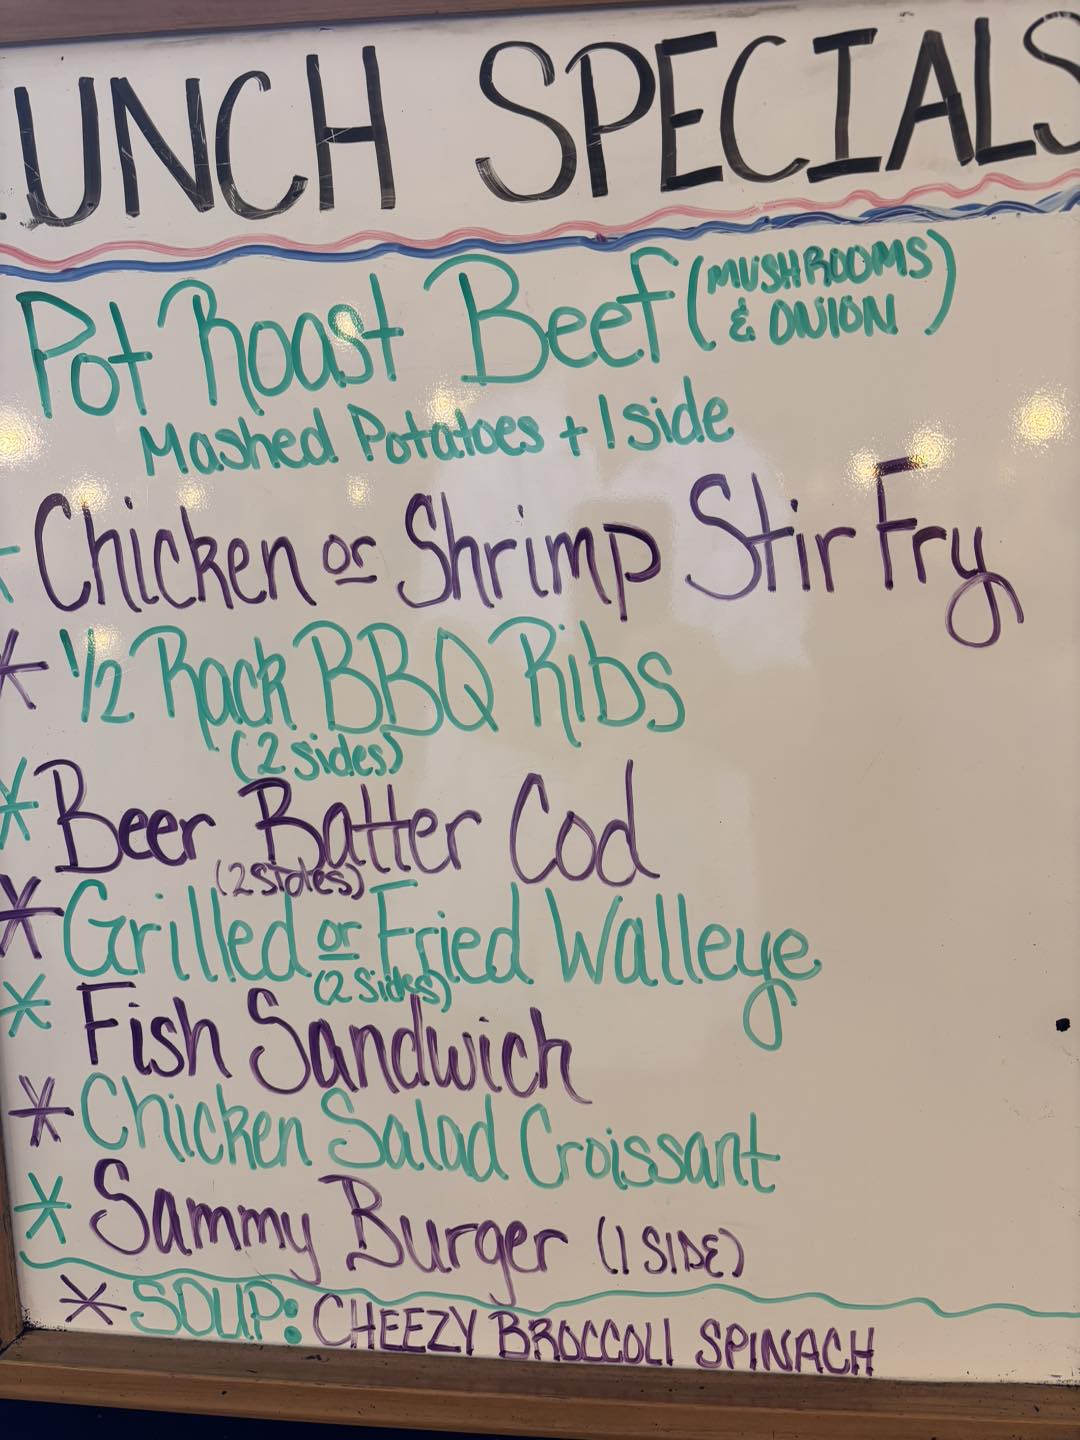 LUNCH SPECIALS
Pot Roast Beef (MUSHROOMS
& ONION)
Mashed Potatoes + 1 side
* Chicken or Shrimp Stir Fry
* 1/2 Rack BBQ Ribs
(2 sides)
* Beer Batter Cod
(2 sides)
* Grilled or Fried Walleye
(2 sides)
* Fish Sandwich
* Chicken Salad Croissant
* Sammy Burger (1 SIDE)
* SOUP: CHEEZY BROCCOLI SPINACH